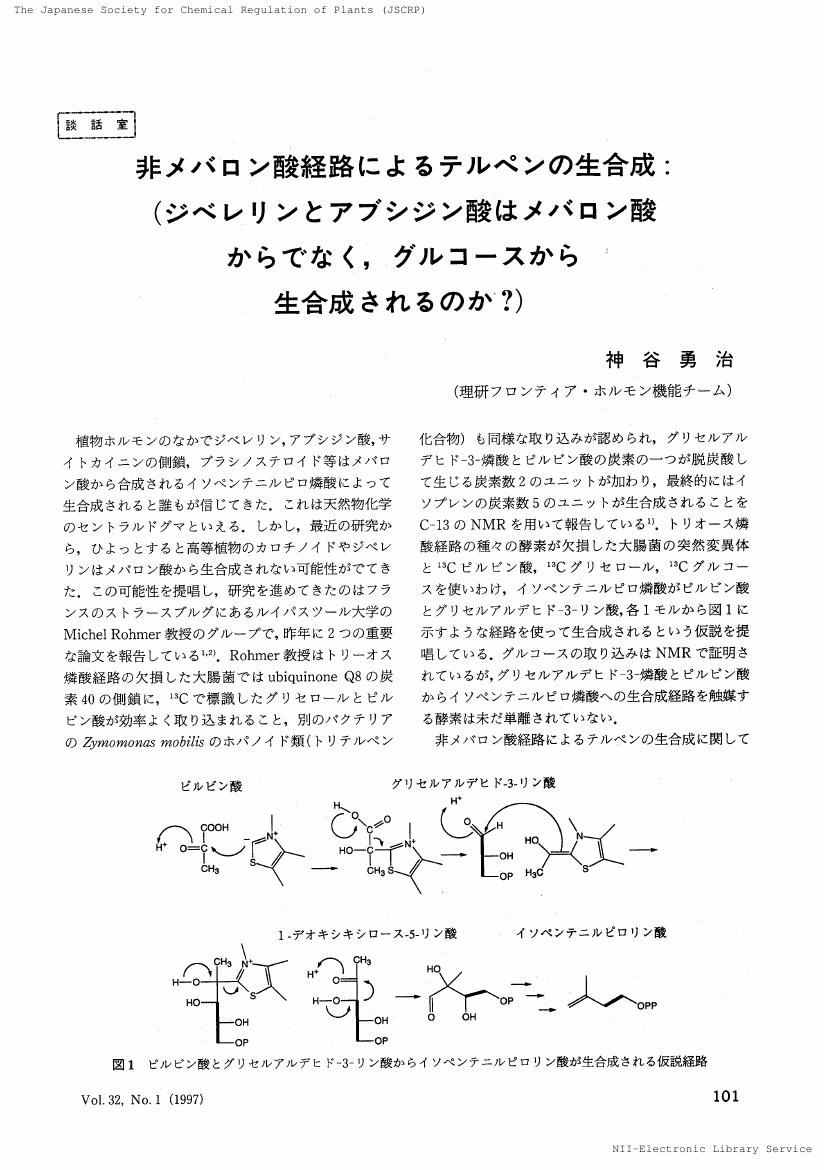 The Japanese Society for Chemical Regulation of Plants (JSCRP)
談話室
非メバロン酸経路によるテルペンの生合成:
(ジベレリンとアブシジン酸はメバロン酸
からでなく,グルコースから
生合成されるのか?)
神谷勇治
(理研フロンティア・ホルモン機能チーム)
植物ホルモンのなかでジベレリン,アブシジン酸,サ
イトカイニンの側鎖,ブラシノステロイド等はメバロ
ン酸から合成されるイソペンテニルピロ燐酸によって
生合成されると誰もが信じてきた.これは天然物化学
のセントラルドグマといえる.しかし,最近の研究か
ら,ひょっとすると高等植物のカロチノイドやジベレ
リンはメバロン酸から生合成されない可能性がでてき
た.この可能性を提唱し,研究を進めてきたのはフラ
ンスのストラースブルグにあるルイパスツール大学の
Michel Rohmer 教授のグループで,昨年に2つの重要
な論文を報告している1,2).Rohmer 教授はトリーオス
燐酸経路の欠損した大腸菌では ubiquinone Q8 の炭
素40の側鎖に,13Cで標識したグリセロールとピル
ビン酸が効率よく取り込まれること,別のバクテリア
の Zymomonas mobilis のホパノイド類(トリテルペン
化合物)も同様な取り込みが認められ,グリセルアル
デヒド-3-燐酸とピルビン酸の炭素の一つが脱炭酸し
て生じる炭素数2のユニットが加わり,最終的にはイ
ソプレンの炭素数5のユニットが生合成されることを
C-13 の NMR を用いて報告している1).トリオース燐
酸経路の種々の酵素が欠損した大腸菌の突然変異体
と 13C ピルビン酸,13C グリセロール,13C グルコー
スを使いわけ,イソペンテニルピロ燐酸がピルビン酸
とグリセルアルデヒド-3-リン酸,各1モルから図1に
示すような経路を使って生合成されるという仮説を提
唱している.グルコースの取り込みは NMR で証明さ
れているが,グリセルアルデヒド-3-燐酸とピルビン酸
からイソペンテニルピロ燐酸への生合成経路を触媒す
る酵素は未だ単離されていない.
非メバロン酸経路によるテルペンの生合成に関して
ピルビン酸
グリセルアルデヒド-3-リン酸
H+ O COOH CH3 N+ S
H O O HO C CH3 N+ S
H+ O H OH OP
HO H3C N S
1-デオキシキシロース-5-リン酸
イソペンテニルピロリン酸
CH3 N+ H O S HO OH OP
H+ CH3 O H O OH OP
HO O OH OP
OPP
図1 ピルビン酸とグリセルアルデヒド-3-リン酸からイソペンテニルピロリン酸が生合成される仮説経路
Vol. 32, No. 1 (1997)
101
NII-Electronic Library Service